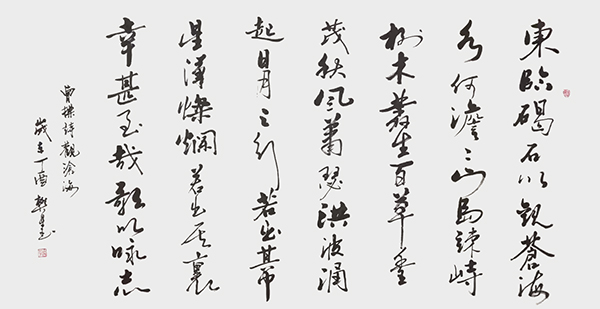 東臨碣石以觀蒼海
水何澹々山島竦峙
樹木叢生百草豐
茂秋風蕭瑟洪波涌
起日月之行若出其中
星漢燦爛若出其裏
幸甚至哉歌以咏志
曹操詩觀滄海
歲在丁酉